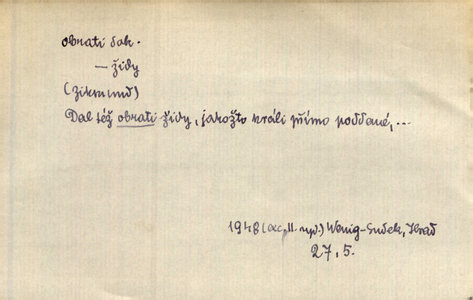 obrati dok.
— židy
(Zikmund)
Dal též obrati židy, jakožto králi přímo poddané, ...
1948 (ac, II. vyd.) Wenig-Sudek, Hrad
27, 5.